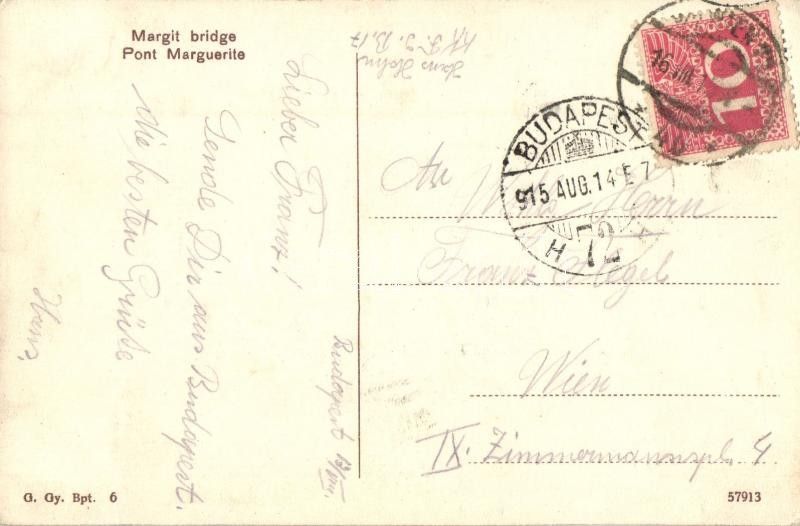 Margit bridge
Pont Marguerite
Hans Hahn
Lieber Franz!
Sende Dir aus Budapest.
die besten Grüße
Hans.
Budapest 13/VIII.
10
BUDAPEST
915 AUG.14 E 7
H 72
An
Herrn
Franz Hegel
Wien
IX. Zimmermannspl. 4
G. Gy. Bpt. 6
57913